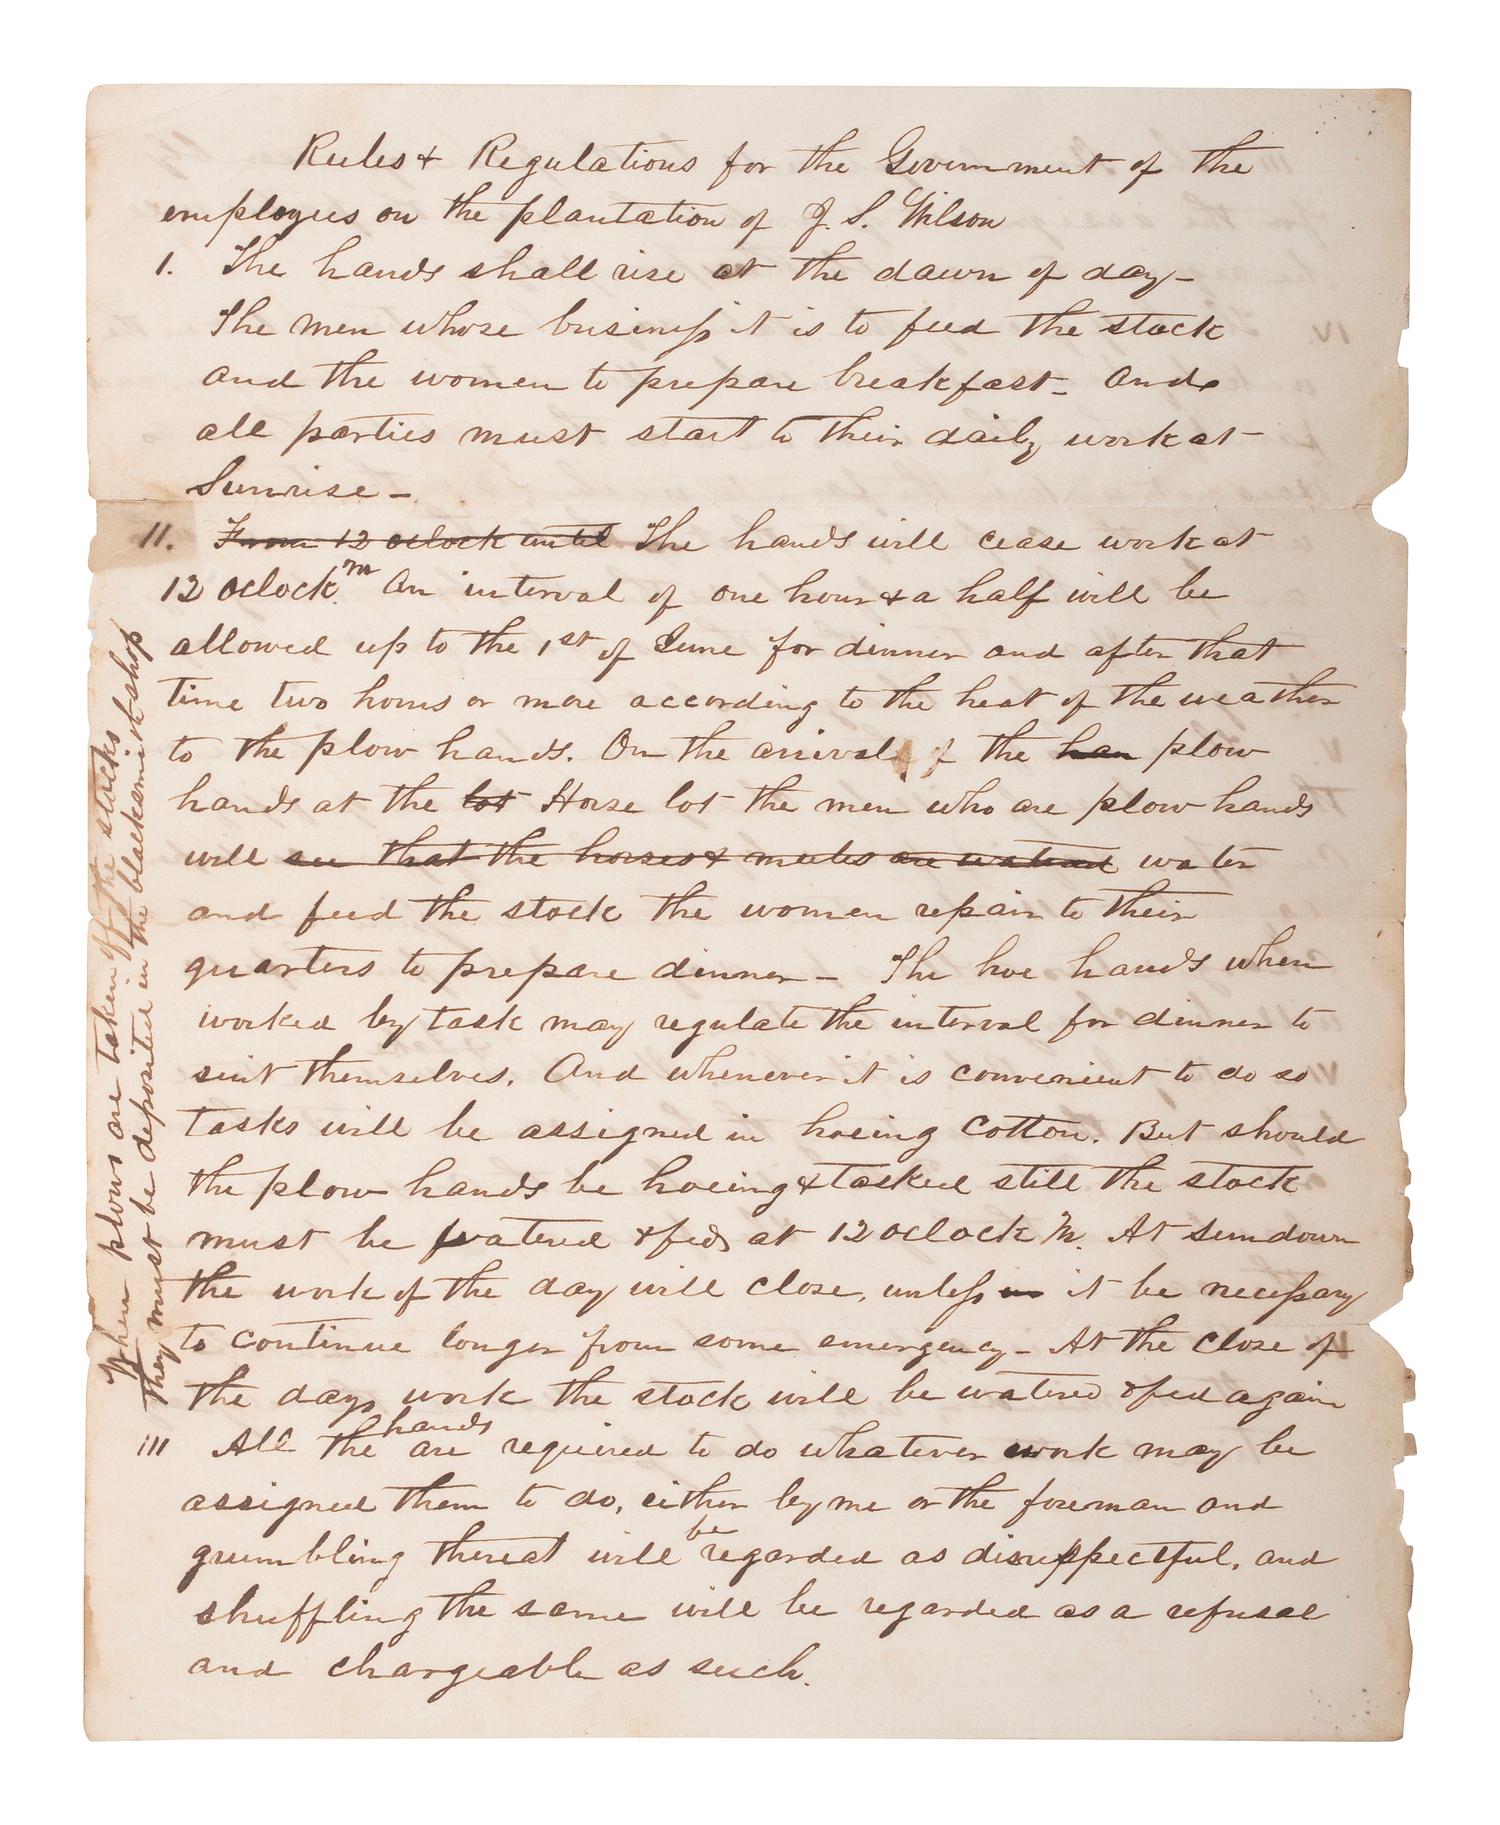 Rules & Regulations for the Government of the
employees on the plantation of J. S. Wilson
1. The hands shall rise at the dawn of day –
The men whose business it is to feed the stock
and the women to prepare breakfast – And
all parties must start to their daily work at
Sunrise –
11. From 12 oclock until The hands will cease work at
12 oclock M. An interval of one hour & a half will be
allowed up to the 1st of June for dinner and after that
time two hours or more according to the heat of the weather
to the plow hands. On the arrival of the han plow
hands at the lot Horse lot the men who are plow hands
will see that the horses & mules are watered water
and feed the stock the women repair to their
quarters to prepare dinner – The hoe hands when
worked by task may regulate the interval for dinner to
suit themselves. And whenever it is convenient to do so
tasks will be assigned in hoeing cotton. But should
the plow hands be hoeing & tasked still the stock
must be watered & fed at 12 oclock M. At sundown
the work of the day will close, unless in it be necessary
to continue longer from some emergency – At the close of
the days work the stock will be watered & fed again
111 All the hands are required to do whatever work may be
assigned them to do, either by me or the foreman and
grumbling thereat will be regarded as disrespectful, and
shuffling the same will be regarded as a refusal
and chargeable as such.
When plows are taken off the stocks
they must be deposited in the blacksmith shop